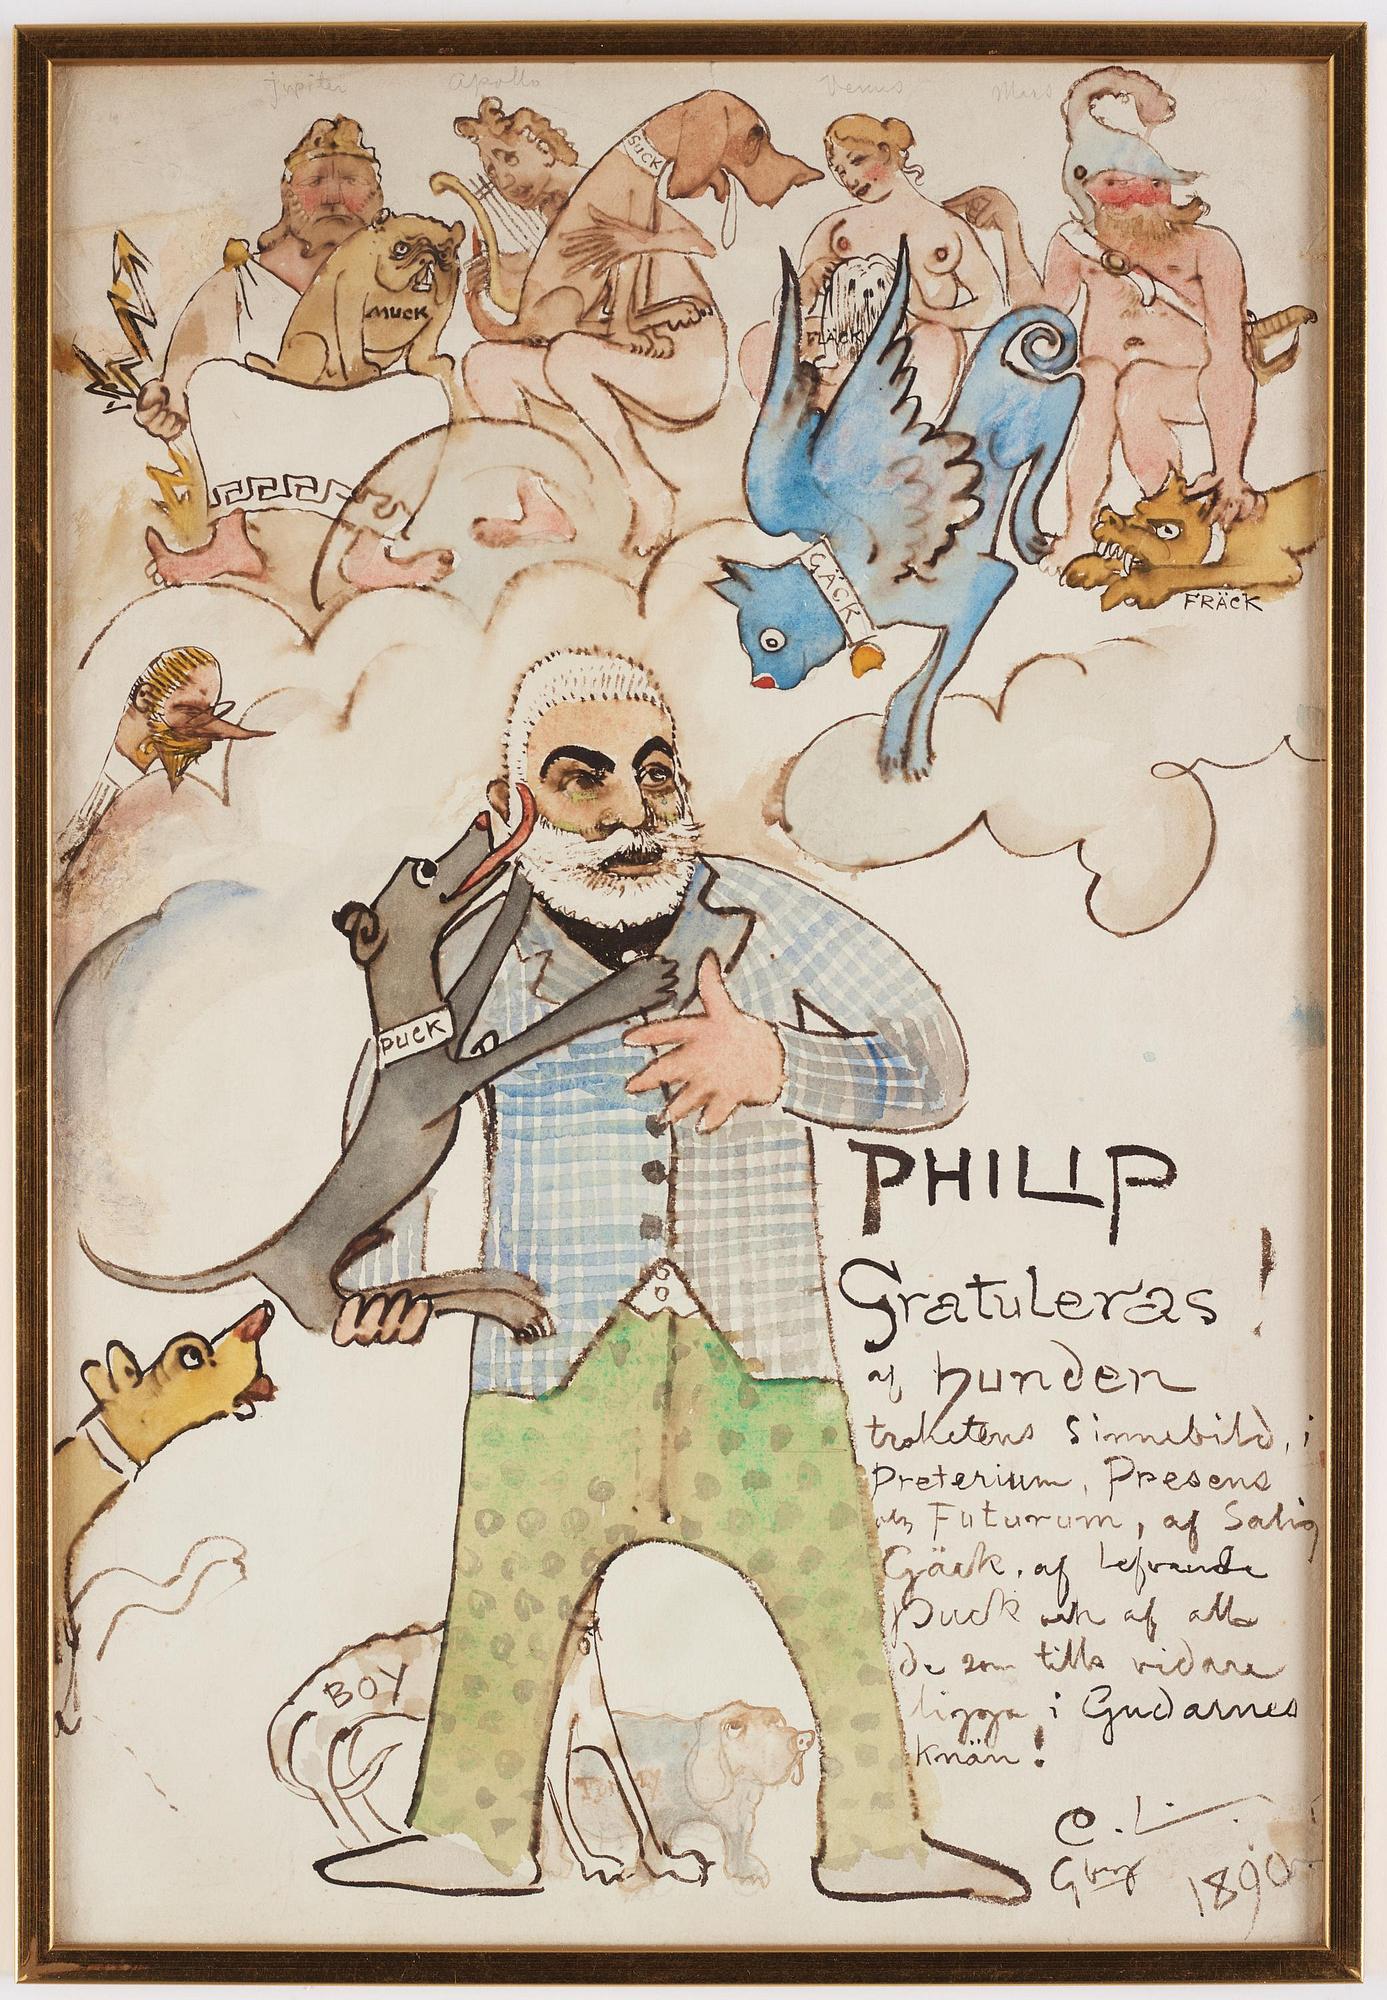 jupiter Apollo Venus Mars
SUCK
MUCK
FLÄCK
GÄCK
FRÄCK
PUCK
PHILIP
Gratuleras!
af hunden
trohetens Sinnebild, i
Preterium, Presens
och Futurum, af Salig
Gäck, af lefvande
Puck och af alla
de som tills vidare
ligga i Gudarnes
knän!
BOY
C.L.
Gbrg 1890